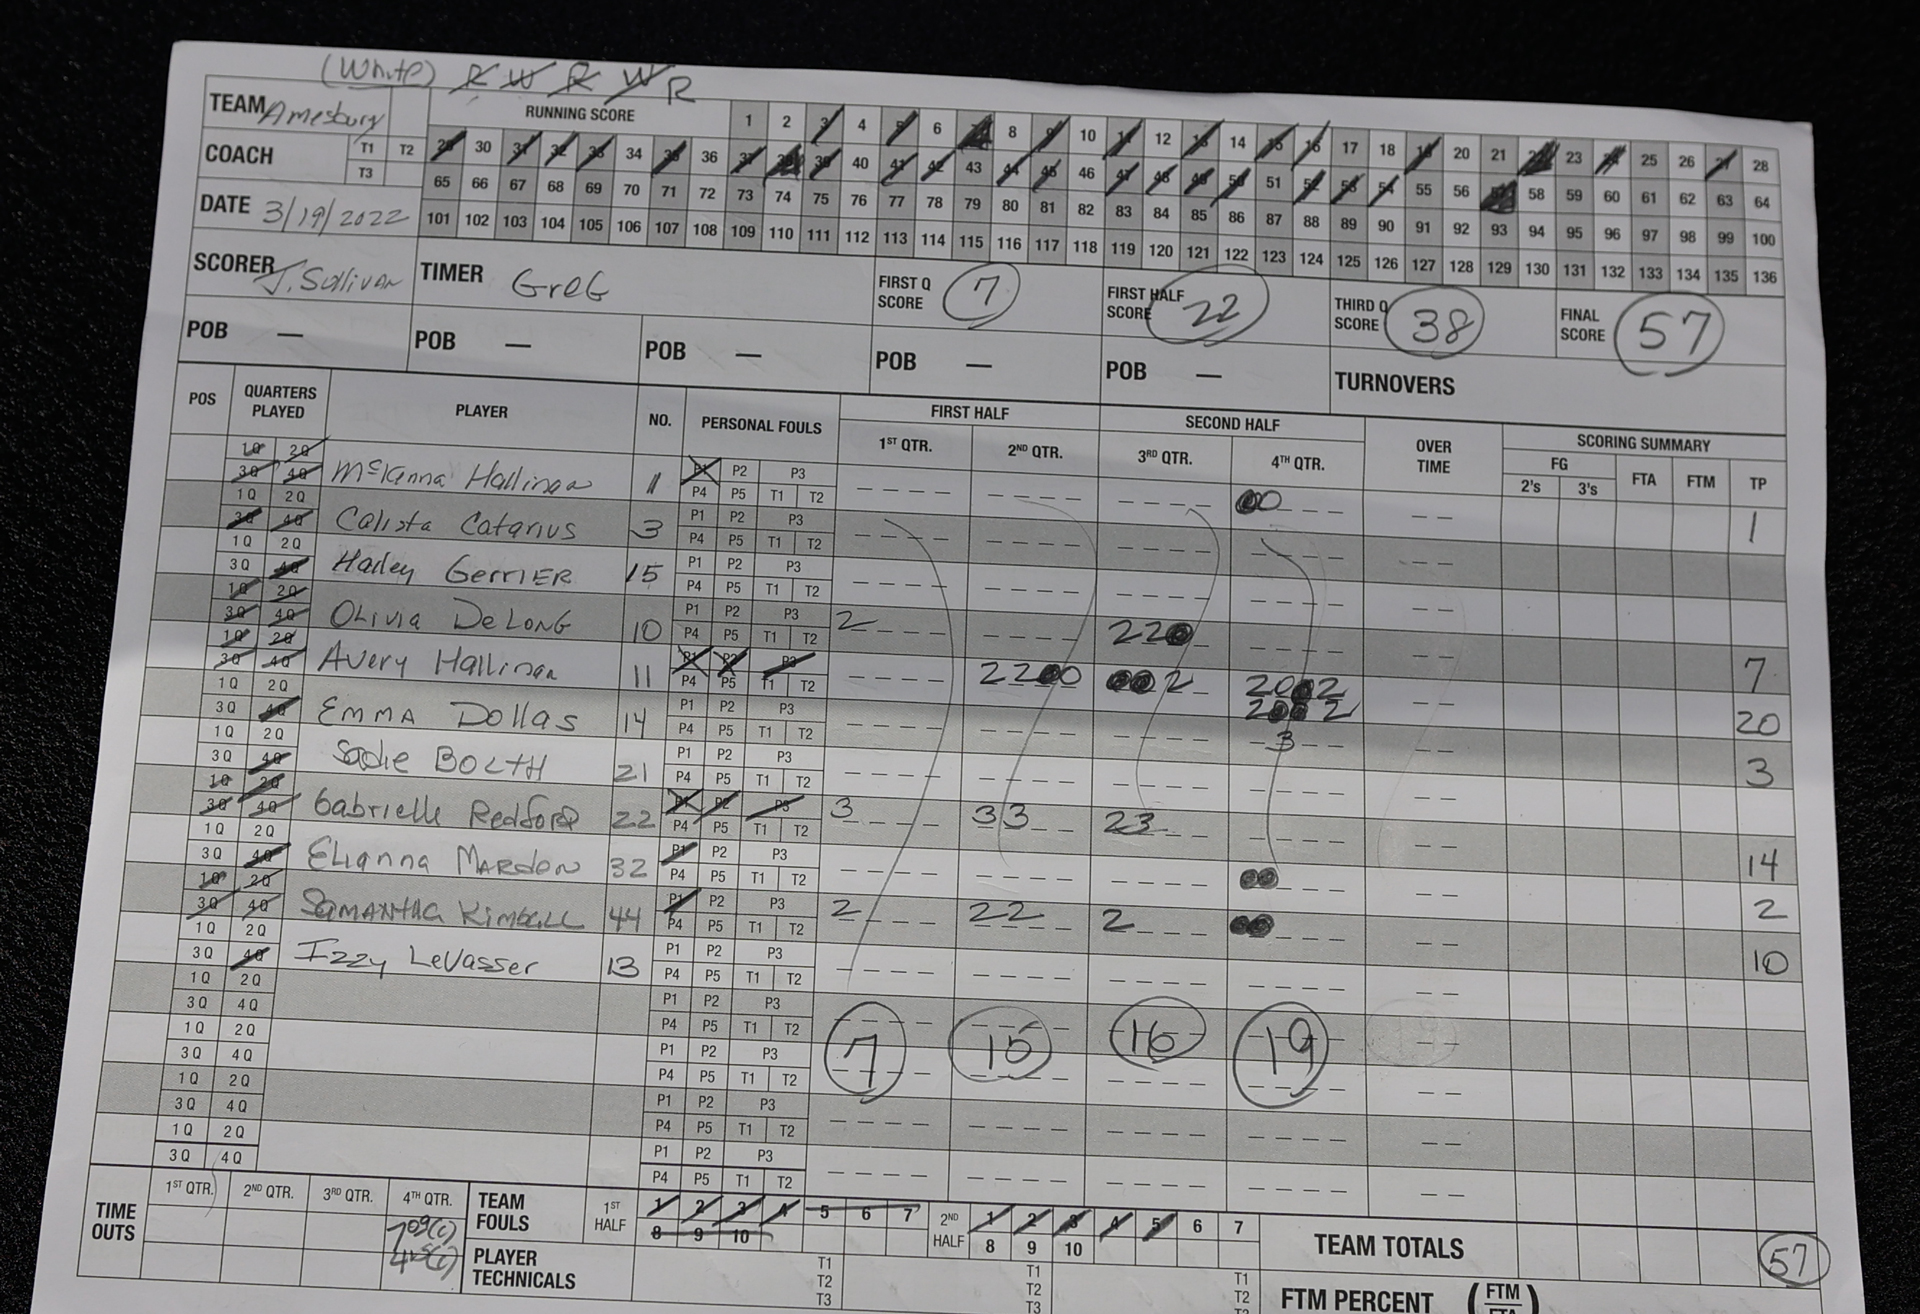 (White) R W R W R
TEAM Amesbury RUNNING SCORE 1 2 3 4 5 6 7 8 9 10 11 12 13 14 15 16 17 18 19 20 21 22 23 24 25 26 27 28
COACH T1 T2 T3 29 30 31 32 33 34 35 36 37 38 39 40 41 42 43 44 45 46 47 48 49 50 51 52 53 54 55 56 57 58 59 60 61 62 63 64
65 66 67 68 69 70 71 72 73 74 75 76 77 78 79 80 81 82 83 84 85 86 87 88 89 90 91 92 93 94 95 96 97 98 99 100
DATE 3/19/2022 101 102 103 104 105 106 107 108 109 110 111 112 113 114 115 116 117 118 119 120 121 122 123 124 125 126 127 128 129 130 131 132 133 134 135 136
SCORER J. Sullivan TIMER GreG FIRST Q SCORE 7 FIRST HALF SCORE 22 THIRD Q SCORE 38 FINAL SCORE 57
POB — POB — POB — POB — POB — TURNOVERS
POS QUARTERS PLAYED PLAYER NO. PERSONAL FOULS FIRST HALF SECOND HALF OVER TIME SCORING SUMMARY
1ST QTR. 2ND QTR. 3RD QTR. 4TH QTR. FG 2's 3's FTA FTM TP
1Q 2Q 3Q 4Q McKenna Hallinan 1 P1 P2 P3 P4 P5 T1 T2 1
1Q 2Q 3Q 4Q Calista Catarius 3 P1 P2 P3 P4 P5 T1 T2
1Q 2Q 3Q 4Q Harley Gerrier 15 P1 P2 P3 P4 P5 T1 T2
1Q 2Q 3Q 4Q OLIVIA DeLONG 10 P1 P2 P3 P4 P5 T1 T2 2 22 7
1Q 2Q 3Q 4Q Avery Hallinan 11 P1 P2 P3 P4 P5 T1 T2 22 2 20
1Q 2Q 3Q 4Q EMMA Dollas 14 P1 P2 P3 P4 P5 T1 T2 3 3
1Q 2Q 3Q 4Q Sadie BOLTH 21 P1 P2 P3 P4 P5 T1 T2
1Q 2Q 3Q 4Q Gabrielle Redford 22 P1 P2 P3 P4 P5 T1 T2 3 33 23 14
1Q 2Q 3Q 4Q Elianna Mardon 32 P1 P2 P3 P4 P5 T1 T2 2
1Q 2Q 3Q 4Q SAMANTHA Kimball 44 P1 P2 P3 P4 P5 T1 T2 2 22 2 10
1Q 2Q 3Q 4Q Izzy LeVasser 13 P1 P2 P3 P4 P5 T1 T2
1Q 2Q 3Q 4Q P1 P2 P3 P4 P5 T1 T2 7 15 16 19
1Q 2Q 3Q 4Q P1 P2 P3 P4 P5 T1 T2
1Q 2Q 3Q 4Q P1 P2 P3 P4 P5 T1 T2
1Q 2Q 3Q 4Q P1 P2 P3 P4 P5 T1 T2
TIME OUTS 1ST QTR. 2ND QTR. 3RD QTR. 4TH QTR. TEAM FOULS 1ST HALF 1 2 3 4 5 6 7 8 9 10 2ND HALF 1 2 3 4 5 6 7 8 9 10 TEAM TOTALS 57
PLAYER TECHNICALS T1 T2 T3 T1 T2 T3 T1 T2 FTM PERCENT (FTM